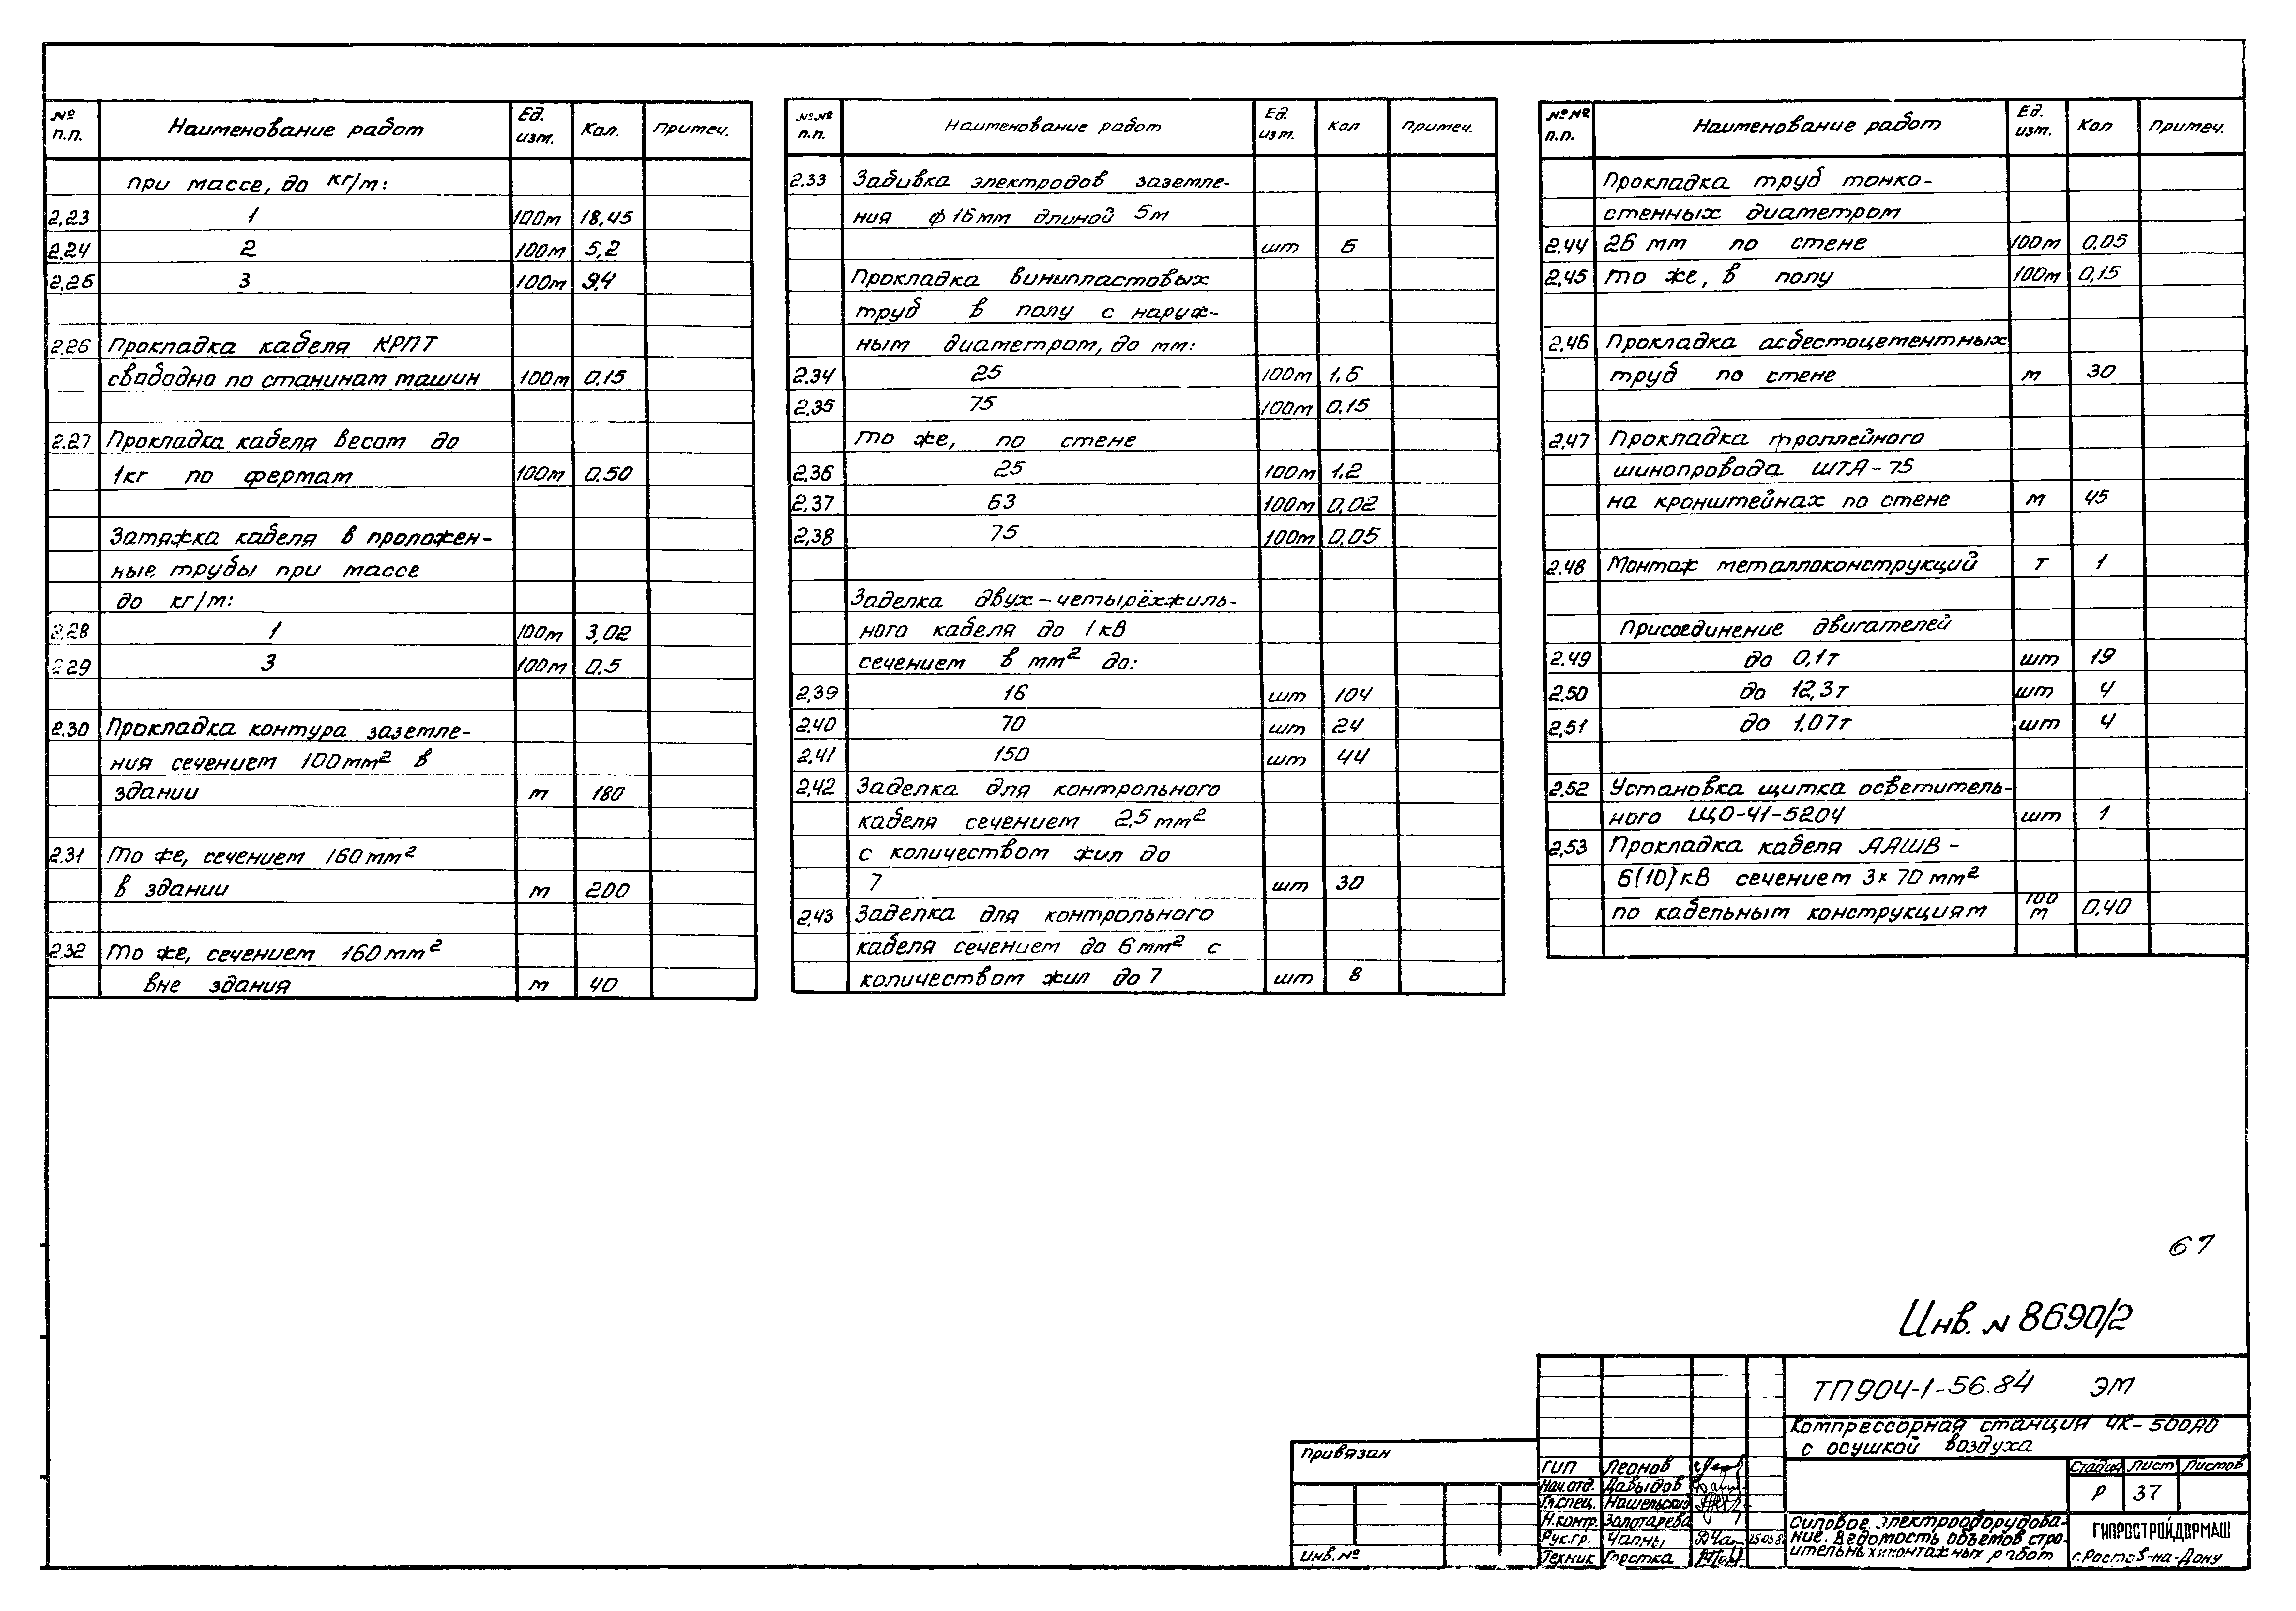 № п.п. Наименование работ Ед. изм. Кол. Примеч.
при массе, до кг/м:
2.23 1 100м 18,45
2.24 2 100м 5,2
2.25 3 100м 9,4
2.26 Прокладка кабеля КРПТ
свободно по станинам машин 100м 0,15
2.27 Прокладка кабеля весом до
1кг по фермам 100м 0,50
Затяжка кабеля в проложен-
ные трубы при массе
до кг/м:
2.28 1 100м 3,02
2.29 3 100м 0,5
2.30 Прокладка контура заземле-
ния сечением 100мм² в
здании м 180
2.31 То же, сечением 160мм²
в здании м 200
2.32 То же, сечением 160мм²
вне здания м 40
№№ п.п. Наименование работ Ед. изм. Кол Примеч.
2.33 Забивка электродов заземле-
ния ф16мм длиной 5м
шт 6
Прокладка винипластовых
труб в полу с наруж-
ным диаметром, до мм:
2.34 25 100м 1,6
2.35 75 100м 0,15
То же, по стене
2.36 25 100м 1,2
2.37 63 100м 0,02
2.38 75 100м 0,05
Заделка двух-четырёхжиль-
ного кабеля до 1кВ
сечением в мм² до:
2.39 16 шт 104
2.40 70 шт 24
2.41 150 шт 44
2.42 Заделка для контрольного
кабеля сечением 2,5мм²
с количеством жил до
7 шт 30
2.43 Заделка для контрольного
кабеля сечением до 6мм² с
количеством жил до 7 шт 8
№№ п.п. Наименование работ Ед. изм. Кол Примеч.
Прокладка труб тонко-
стенных диаметром
2.44 26 мм по стене 100м 0,05
2.45 То же, в полу 100м 0,15
2.46 Прокладка асбестоцементных
труб по стене м 30
2.47 Прокладка троллейного
шинопровода ШТА-75
на кронштейнах по стене м 45
2.48 Монтаж металлоконструкций т 1
Присоединение двигателей
2.49 до 0,1т шт 19
2.50 до 12,3т шт 4
2.51 до 1.07т шт 4
2.52 Установка щитка осветитель-
ного ЩО-41-5204 шт 1
2.53 Прокладка кабеля ААШВ-
6(10)кВ сечением 3×70мм²
по кабельным конструкциям 100 м 0,40
67
Инв. N 8690/2
ТП904-1-56.84 ЭМ
Компрессорная станция 4К-500АО
с осушкой воздуха
Привязан
Инв. №
ГИП Леонов
Нач.отд. Давыдов
Гл.спец.
Н.контр. Золотарева
Рук.гр. Чалны
Техник
Стадия Лист Листов
Р 37
Силовое электрооборудова-
ние. Ведомость объемов стро-
ительных и монтажных работ
ГИПРОСТРОЙДОРМАШ
г.Ростов-на-Дону